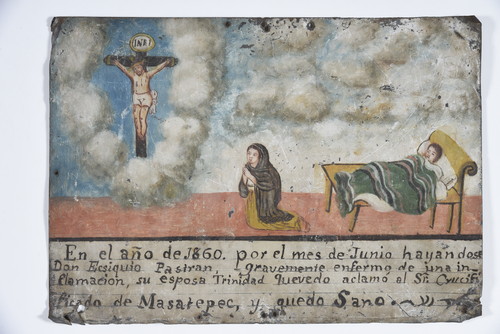 INRI
En el año de 1860. por el mes de Junio hayandose
Don Ecsiquio Pastran, gravemente enfermo de una in-
flamacion, su esposa Trinidad Quevedo aclamó al Sr. Crucifi-
ficado de Masatepec, y quedo Sano.